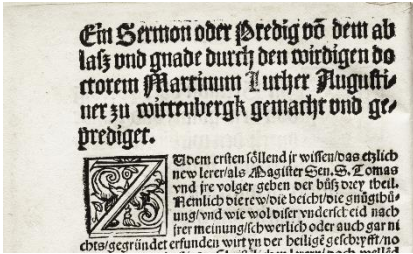 Ein Sermon oder Predig võ dem ab
lasz vnd gnade durch den wirdigen do
ctorem Martinum Luther Augusti⸗
ner zu wittenbergk gemacht vnd ge⸗
prediget.
ZUdem ersten söllend jr wissen/das etzlich
new lerer/als Magister Sen. S. Tomas
vnd jre volger geben der bůsz drey theil.
Nemlich die rew/die beicht/die gnůgthů⸗
ung/vnd wie wol diser vnderscheid nach
jrer meinung/schwerlich oder auch gar ni
chts/gegründet erfunden wirt yn der heiligẽ geschryfft/no